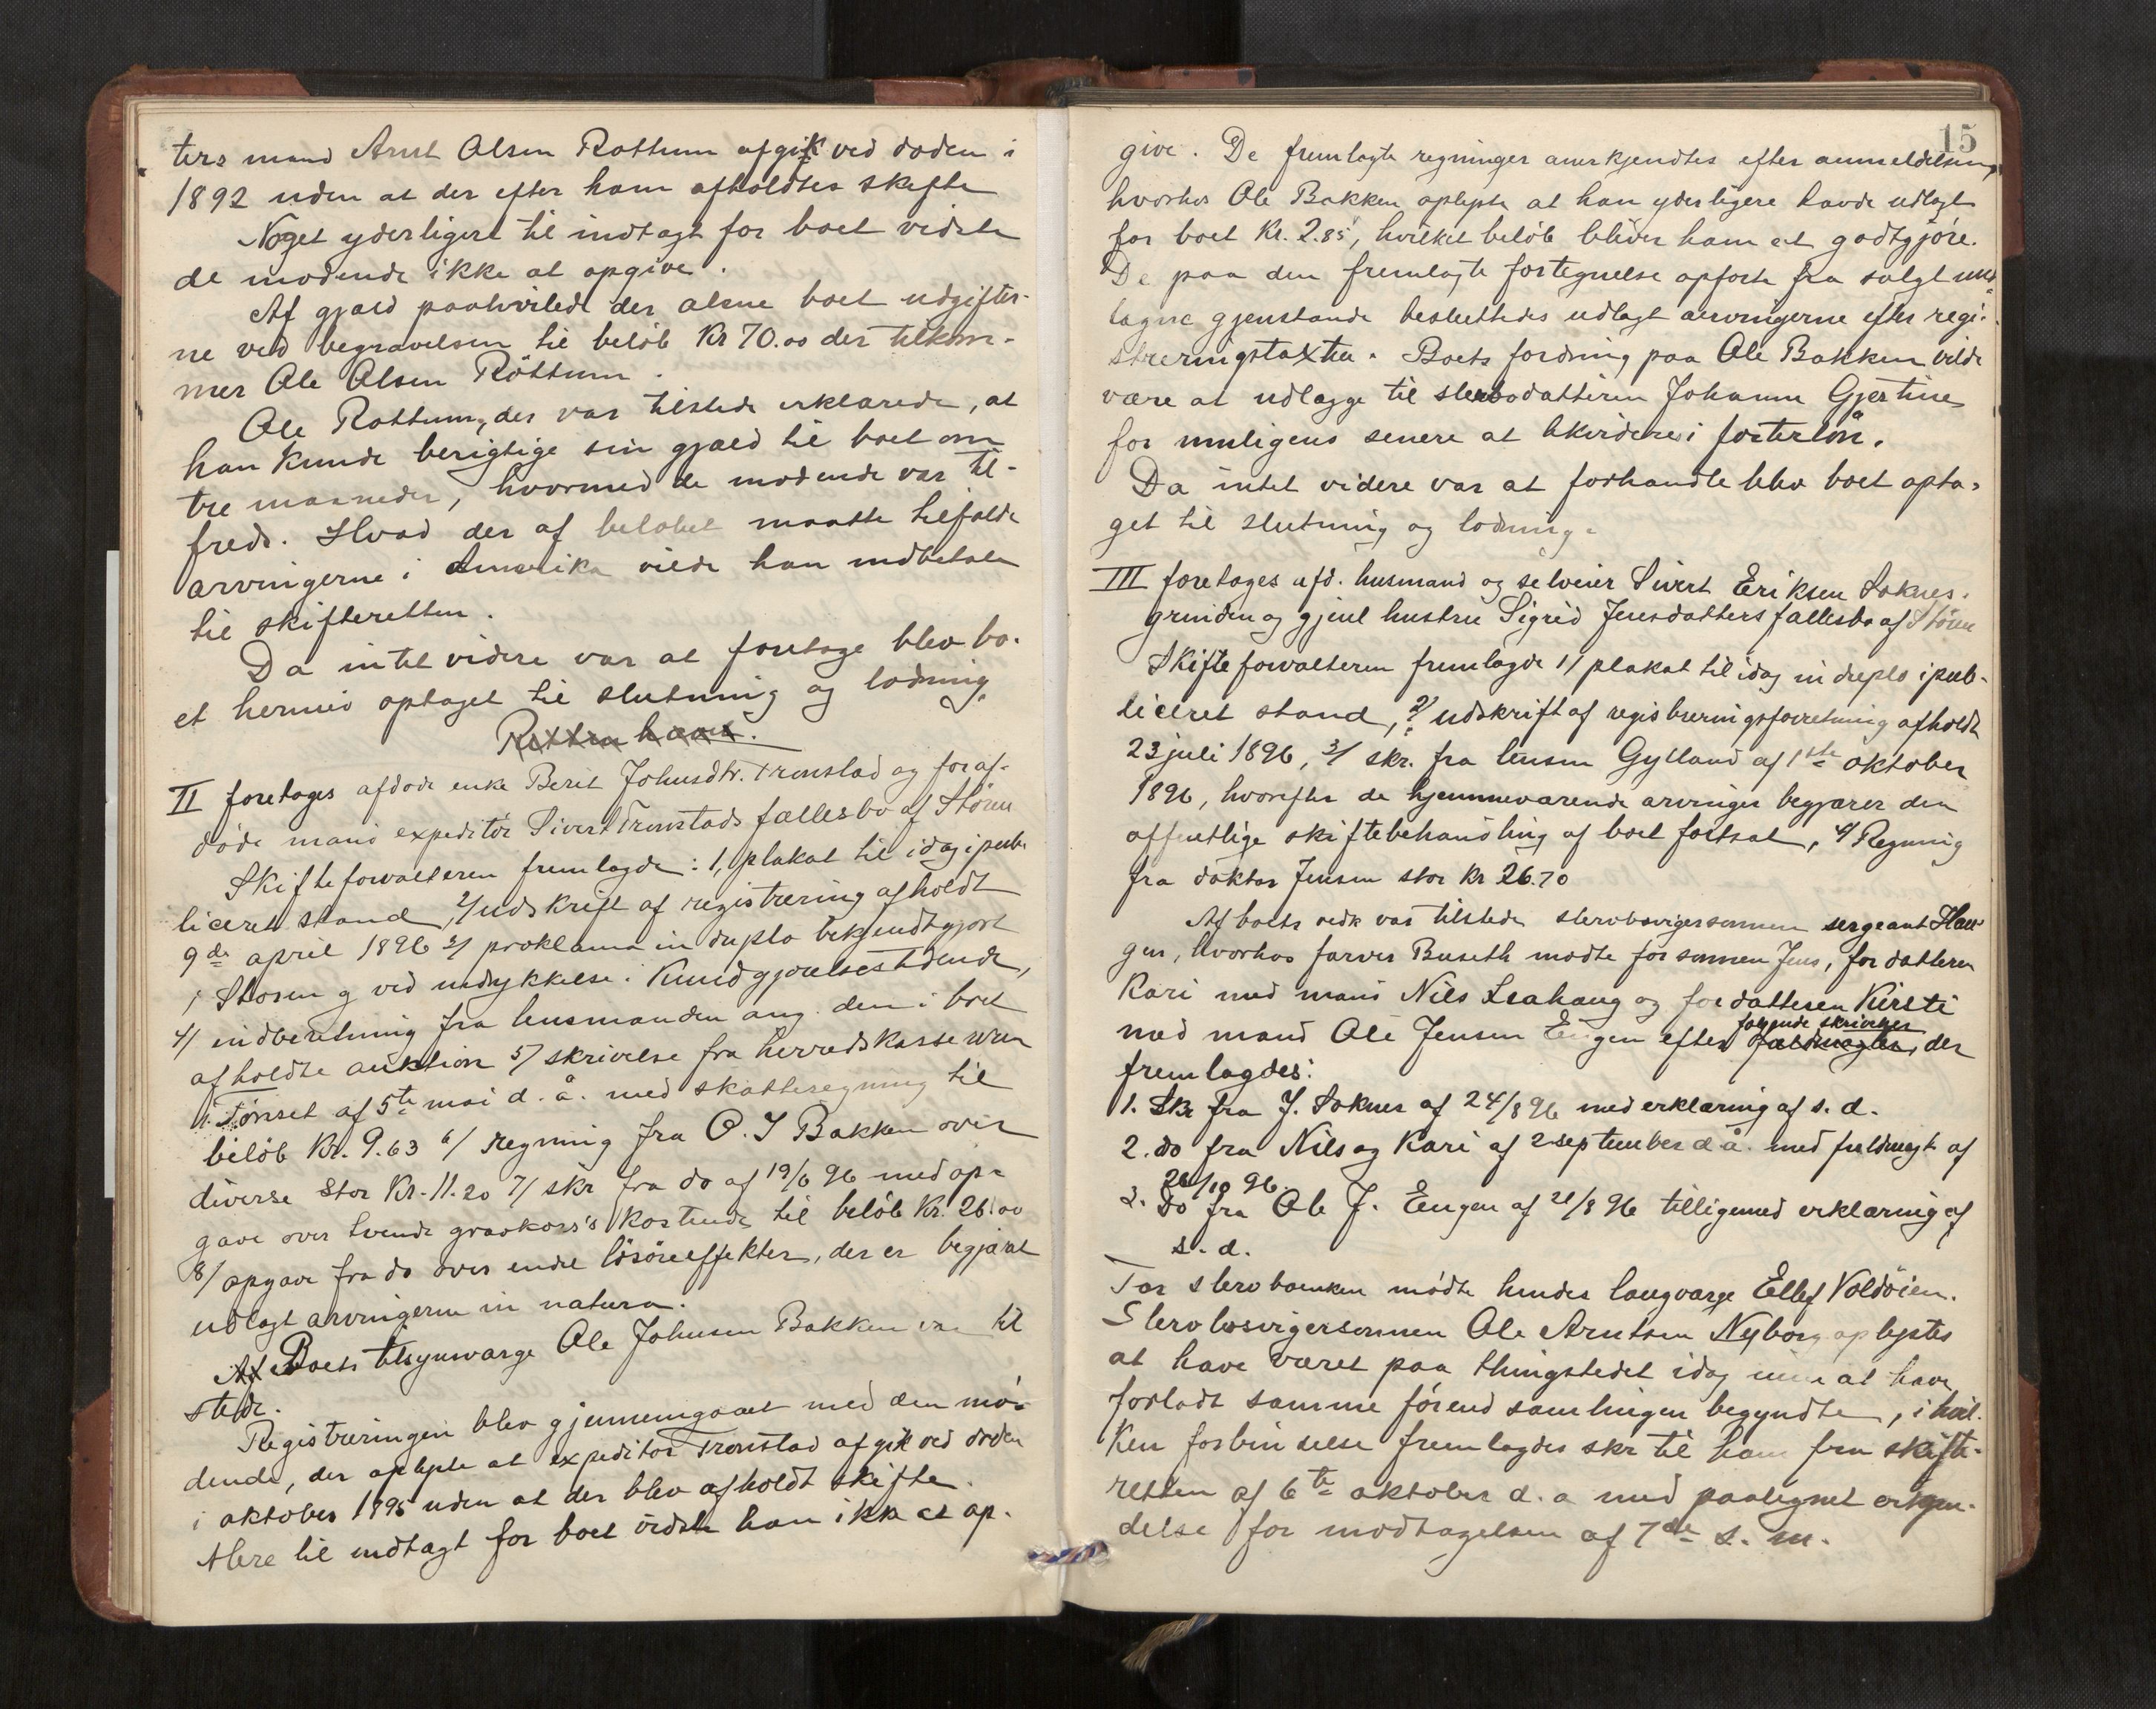 ters mand Arnt Olsen Rottum afgik ved døden i
1892 uden at der efter ham afholdtes skifte
Noget yderligere til indtægt for boet vidste
de mødende ikke at opgive.
Af gjæld paahvilede der alene boet udgifter-
ne ved begravelsen til beløb Kr 70.00 der tilkom-
mer Ole Olsen Röttum.
Ole Rottum, der var tilstede erklærede, at
han kunde berigtige sin gjæld til boet om
tre maaneder, hvormed de mødende var til-
freds. Hvad der af beløbet maatte tilfalde
arvingerne i Amerika vilde han indbetale
til skifteretten.
Da intet videre var at foretage blev bo-
et hermed optaget til slutning og lodning.
Retten hævet.
II foretages afdøde enke Berit Johnsdtr. Tronstad og foraf-
døde mand expeditör Sivert Tronstads fællesbo af Stören
Skifteforvalteren fremlagde: 1, plakat til idag i pub-
liceret stand, 2/ udskrift af registrering afholdt
9de april 1896 3/ proklama in duplo bekjendtgjort
i Støren og ved indrykkelse i Kundgjørelsestidende,
4/ indberetning fra lensmanden ang. den i boet
afholdte auktion 5/ skrivelse fra herredskassereren
i Tönset af 5te mai d. å. med skatteregning til
beløb Kr. 9.63 6/ regning fra O. J Bakken over
diverse stor Kr. 11.20 7/ skr fra do af 19/6 96 med op-
gave over tvende gravkors's kostende til beløb Kr. 26.00
8/ opgave fra do over endel lösöreeffekter, der er begjæret
udlagt arvingerne in natura.
Af Boets tilsynsværge Ole Johnsen Bakken var til
stede.
Registreringen blev gjennemgaaet med den mö-
dende, der oplyste at expeditör Tronstad afgik ved døden
i oktober 1895 uden at der blev afholdt skifte.
Mere til indtægt for boet vidste han ikke at op-
15
give. De fremlagte regninger anerkjendtes efter anmeldelsen,
hvorhos Ole Bakken oplyste at han yderligere havde udlagt
for boet Kr. 2.85, hvilket beløb bliver ham at godtgjöre.
De paa den fremlagte fortegnelse opførte fra salget und-
tagne gjenstande besluttedes udlagt arvingerne efter regi-
streringstaxten. Boets fordring paa Ole Bakken vilde
være at udlægge til stervbodatteren Johanne Gjertine
for muligens senere at likvideres i fosterlön.
Da intet videre var at forhandle blev boet opta-
get til slutning og lodning.
III foretages afd. husmand og selveier Sivert Eriksen Soknes-
grinden og gjenl hustru Sigrid Jensdatters fællesbo af Stören
Skifteforvalteren fremlagde 1/ plakat til idag in duplo i pub-
liceret stand, 2/ udskrift af registreringsforretning afholdt
23 juli 1896, 3/ skr. fra lensm Gylland af 1ste oktober
1896, hvorefter de hjemmeværende arvinger begjærer den
offentlige skiftebehandling af boet fortsat, 4/ Regning
fra doktor Jensen stor Kr 26.70
Af boets vedk var tilstede stervbosvigersønnen sergeant Hau-
gen, hvorhos farver Buseth mødte for sønnen Jens, for datteren
Kari med mand Nils Leahaug og for datteren Kirsti
følgende skrivelser
med mand Ole Jensen Engen efter fuldmagter, der
fremlagdes:
1. Skr fra J. Soknes af 24/8 96 med erklæring af s. d.
2. do fra Nils og Kari af 2 september d. å. med fuldmagt af
26/10 96.
3. Do fra Ole J. Engen af 21/8 96 tilligemed erklæring af
s. d.
For stervboenken mødte hendes laugværge Ellef Voldöien.
Stervbosvigersønnen Ole Arntsen Nyborg oplystes
at have været paa thingstedet idag men at have
forladt samme förend samlingen begyndte, i hvil-
ken forbindelse fremlagdes skr til ham fra skifte-
retten af 6te oktober d. a med paategnet erkjen-
delse for modtagelsen af 7de s. m.